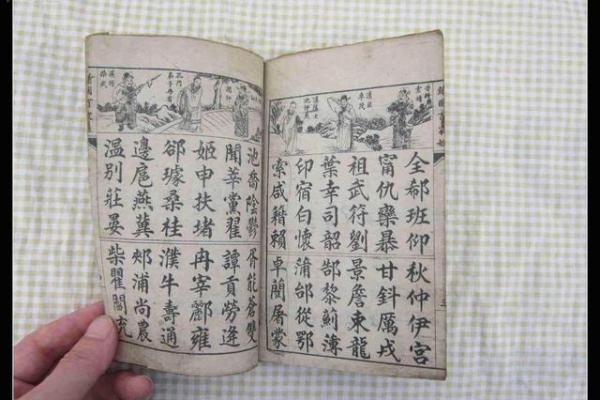 全郗班仰 秋仲伊宮
甯仇欒暴 甘鈄厲戎
祖武符劉 景詹束龍
葉幸司韶 郜黎薊薄
印宿白懷 蒲邰從鄂
索咸籍賴 卓藺屠蒙
池喬陰鬱 胥能蒼雙
聞莘黨翟 譚貢勞逄
姬申扶堵 冉宰酈雍
郤璩桑桂 濮牛壽通
邊扈燕冀 郟浦尚農
溫別莊晏 柴瞿閻充